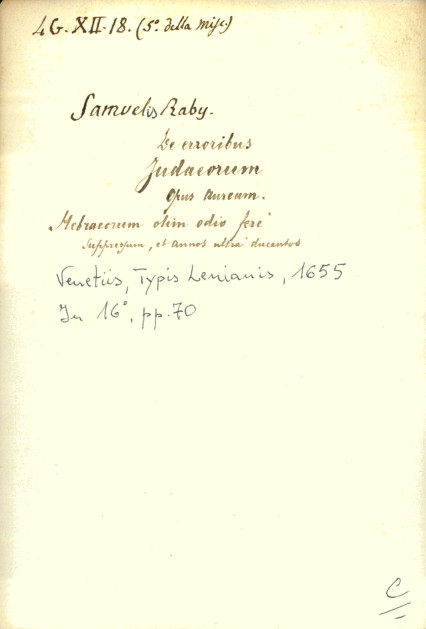 4G.XII.18. (5º della Misc)
Samuelis Raby.
De erroribus
Judaeorum
Opus Aureum.
Hebraeorum olim odio ferè
suppressum, et Annos ultra ducentos
Venetiis, Typis Lenianis, 1655
In 16º, pp. 70
C